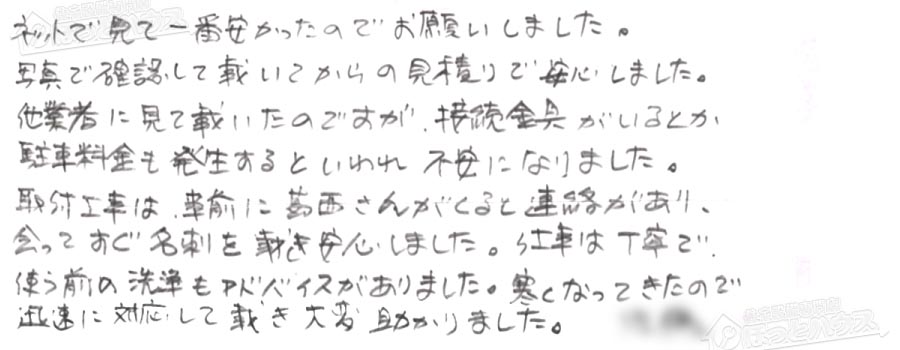 ネットで見て一番安かったのでお願いしました。
写真で確認して載いてからの見積りで安心しました。
他業者に見て載いたのですが、接続金具がいるとか
駐車料金も発生するといわれ不安になりました。
取付工事は、事前に葛西さんがくると連絡があり、
会ってすぐ名刺を戴き安心しました。仕事は丁寧で
使う前の洗浄もアドバイスがありました。寒くなってきたので
迅速に対応して戴き大変助かりました。
ほっとハウス